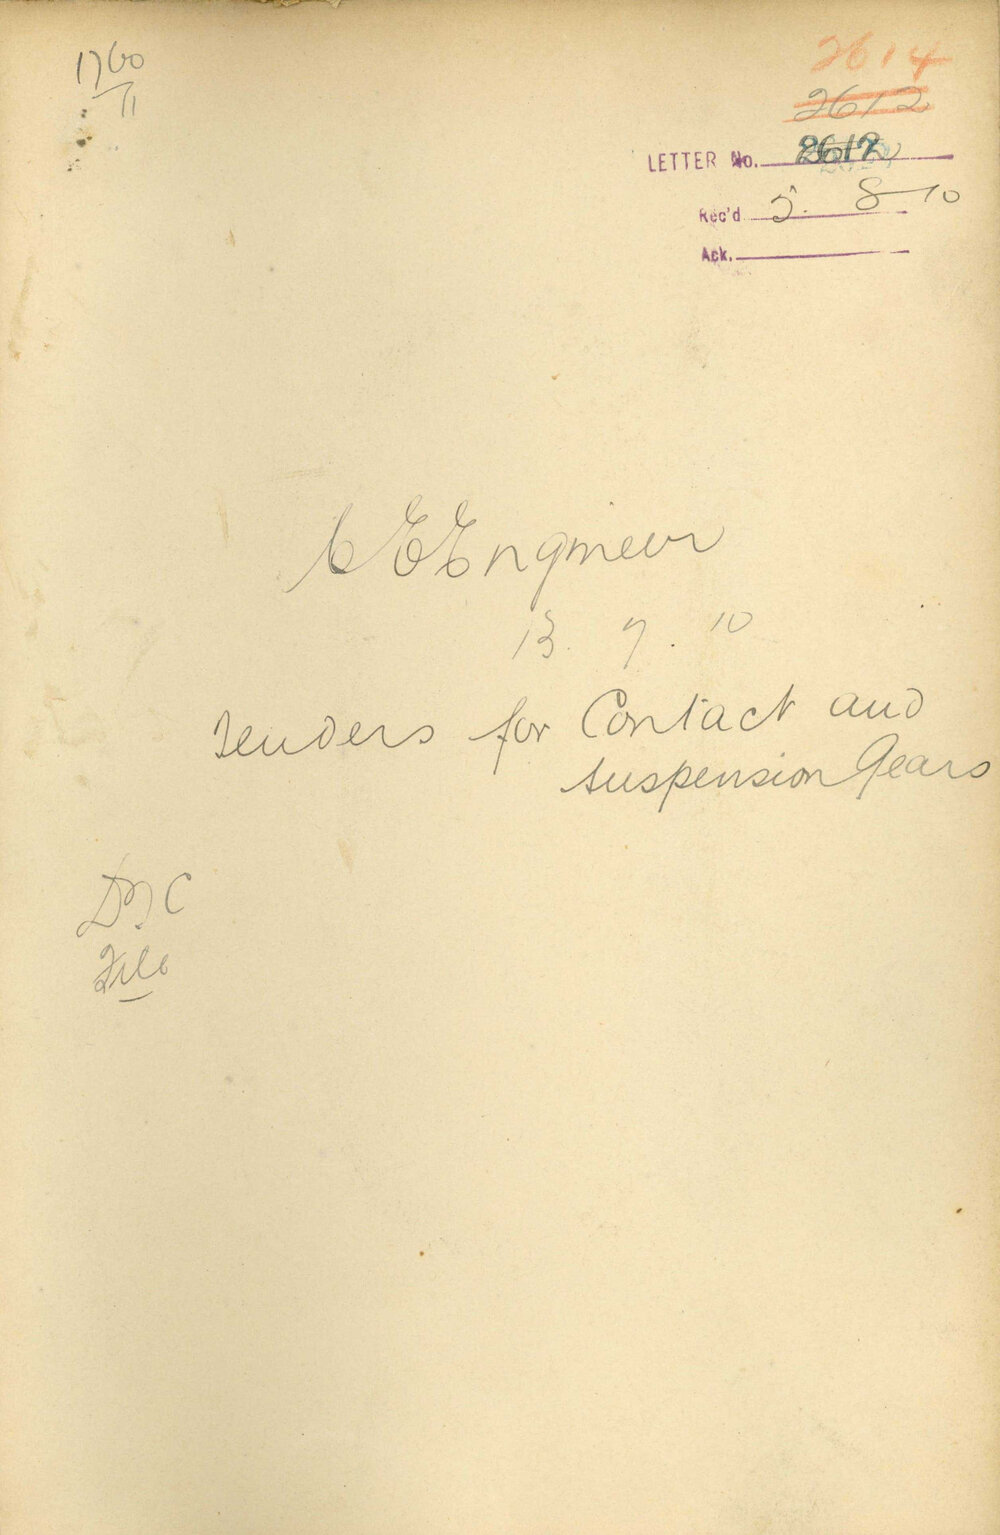 1760
/11
2614
2612
LETTER No. 2612
Rec'd 5. 8 10
Ack.
C E Engineer
13. 7. 10
Tenders for Contact and
suspension Gears
File